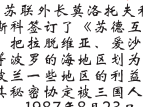 苏联外长莫洛托夫和
斯科签订了《苏德互
，把拉脱维亚、爱沙
等波罗的海地区划为
波兰一些地区的利益
其秘密协定被三国人
1987年8月23日